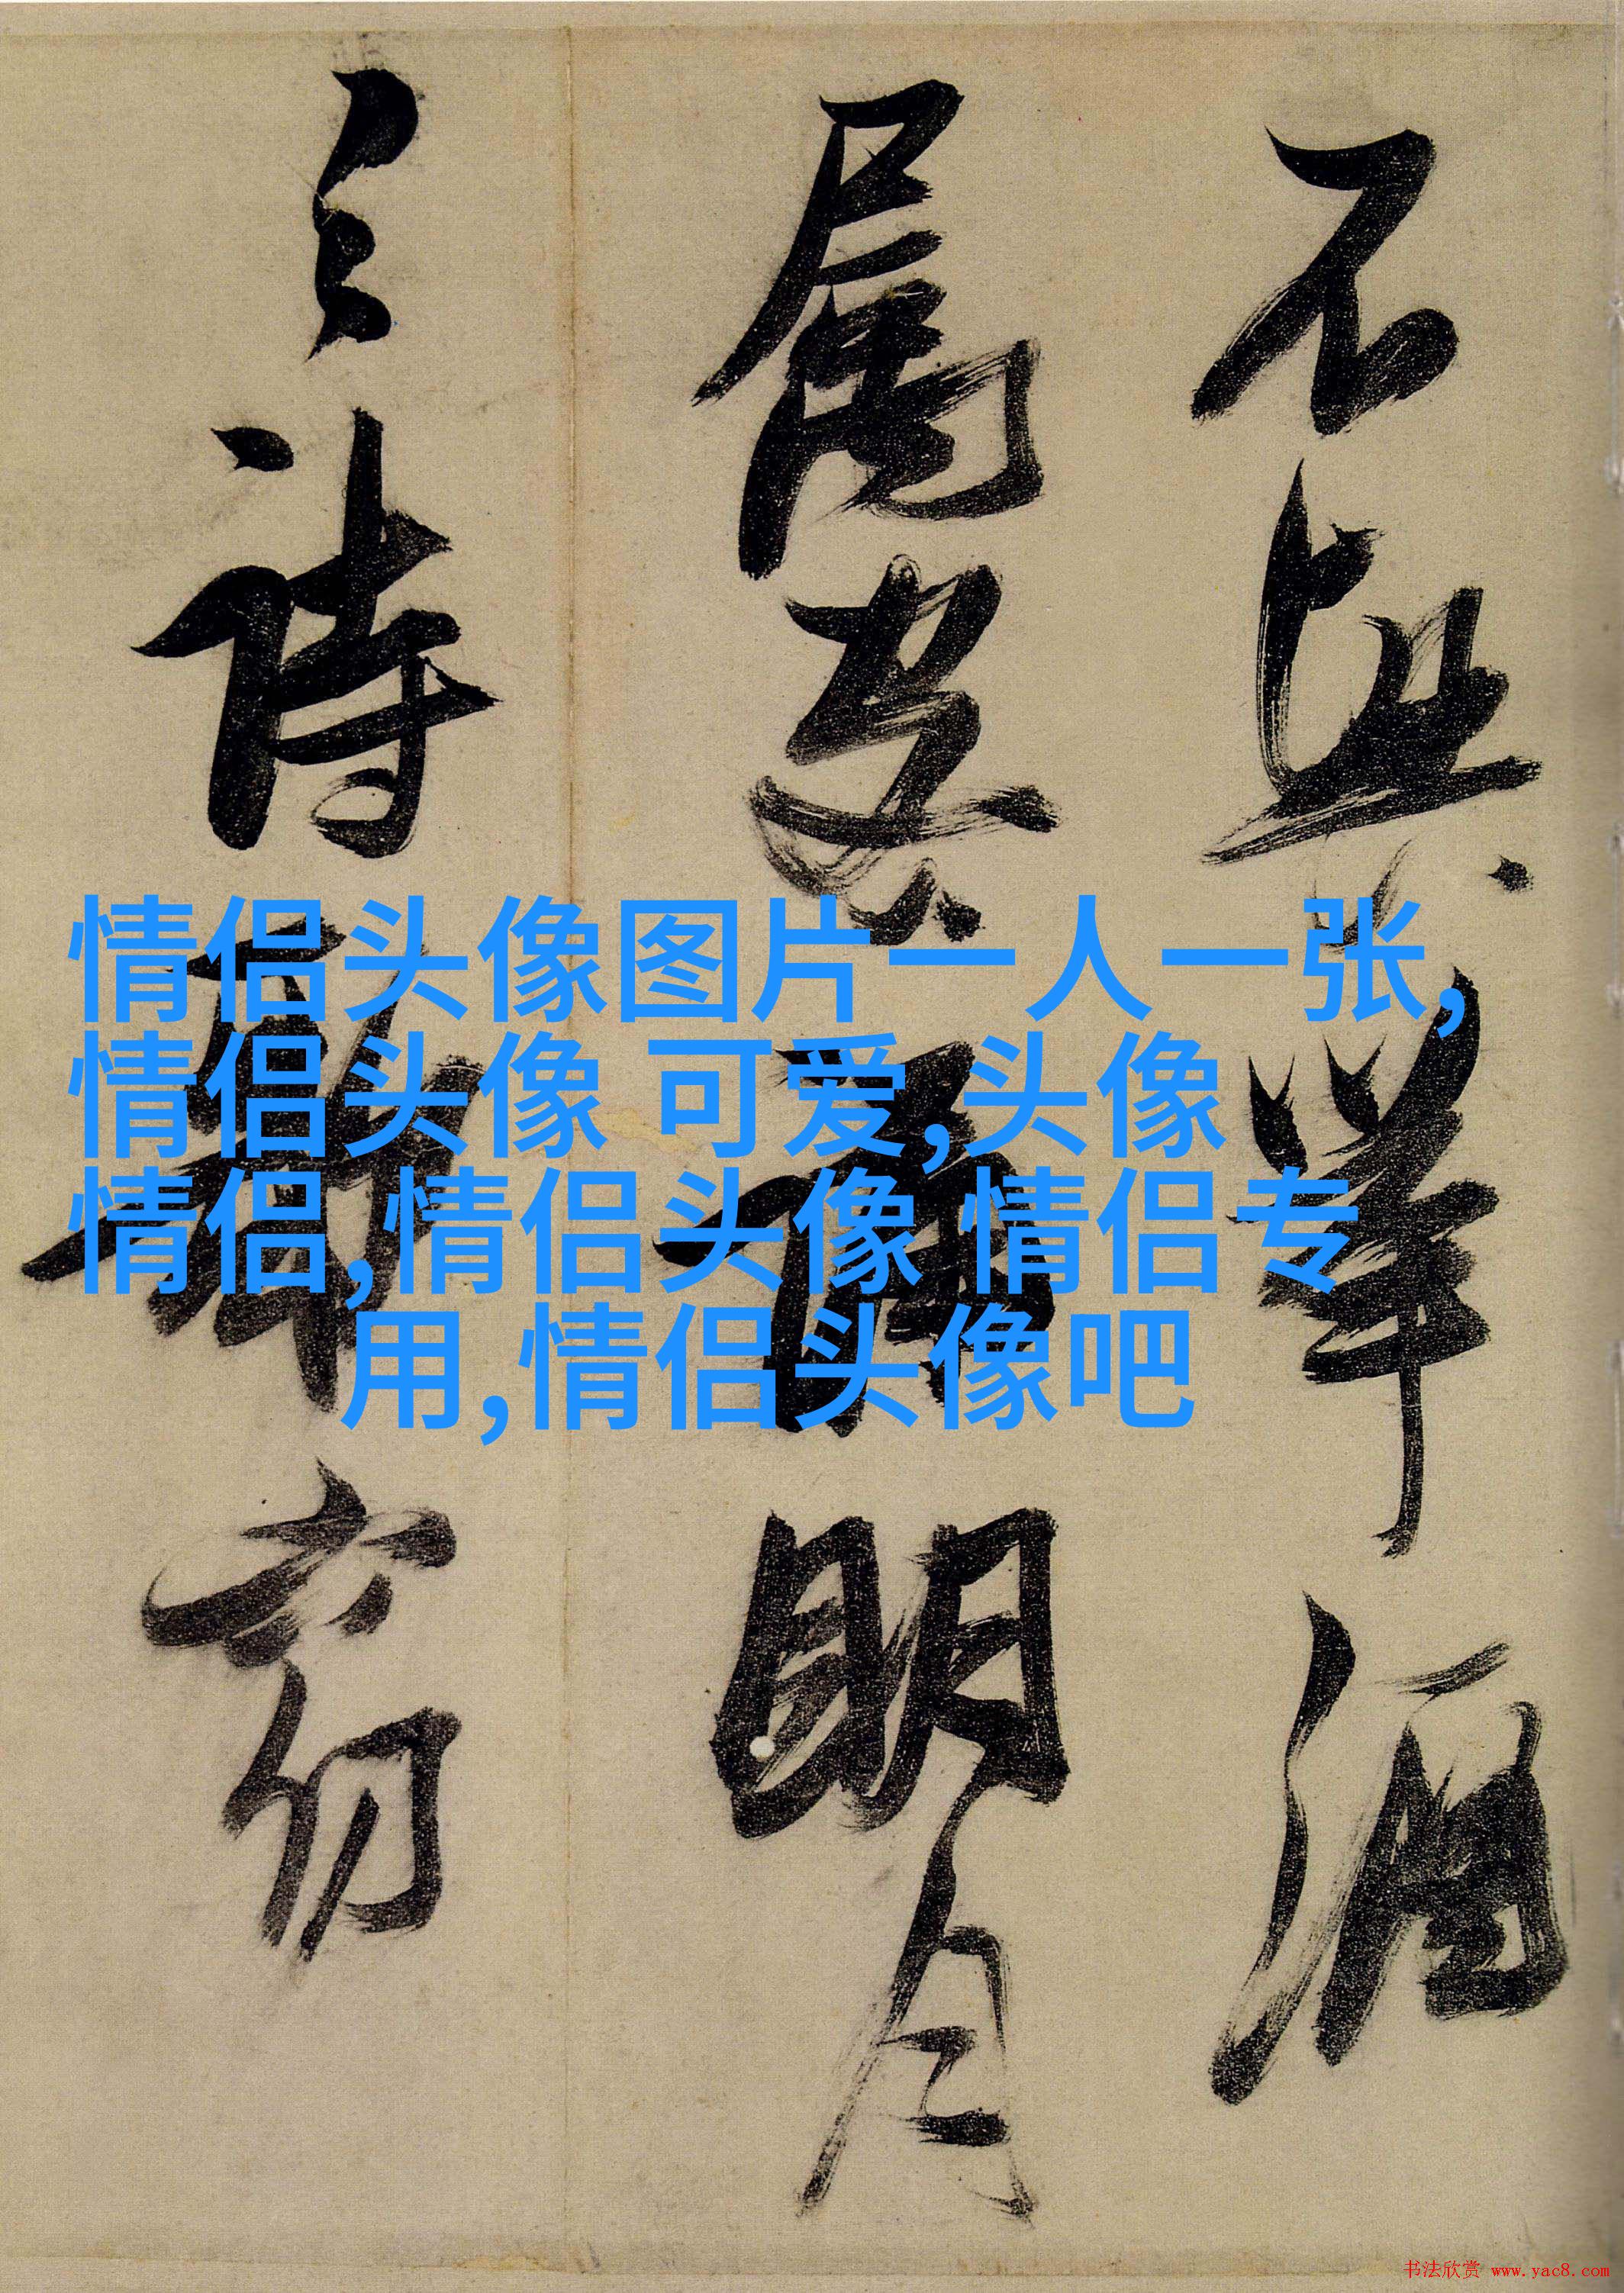 不興舉酒
屬客誦明月
之詩歌窈
情侣头像图片一人一张,
情侣头像 可爱,头像
情侣,情侣头像 情侣专
用,情侣头像吧
书法欣赏 www.yac8.com